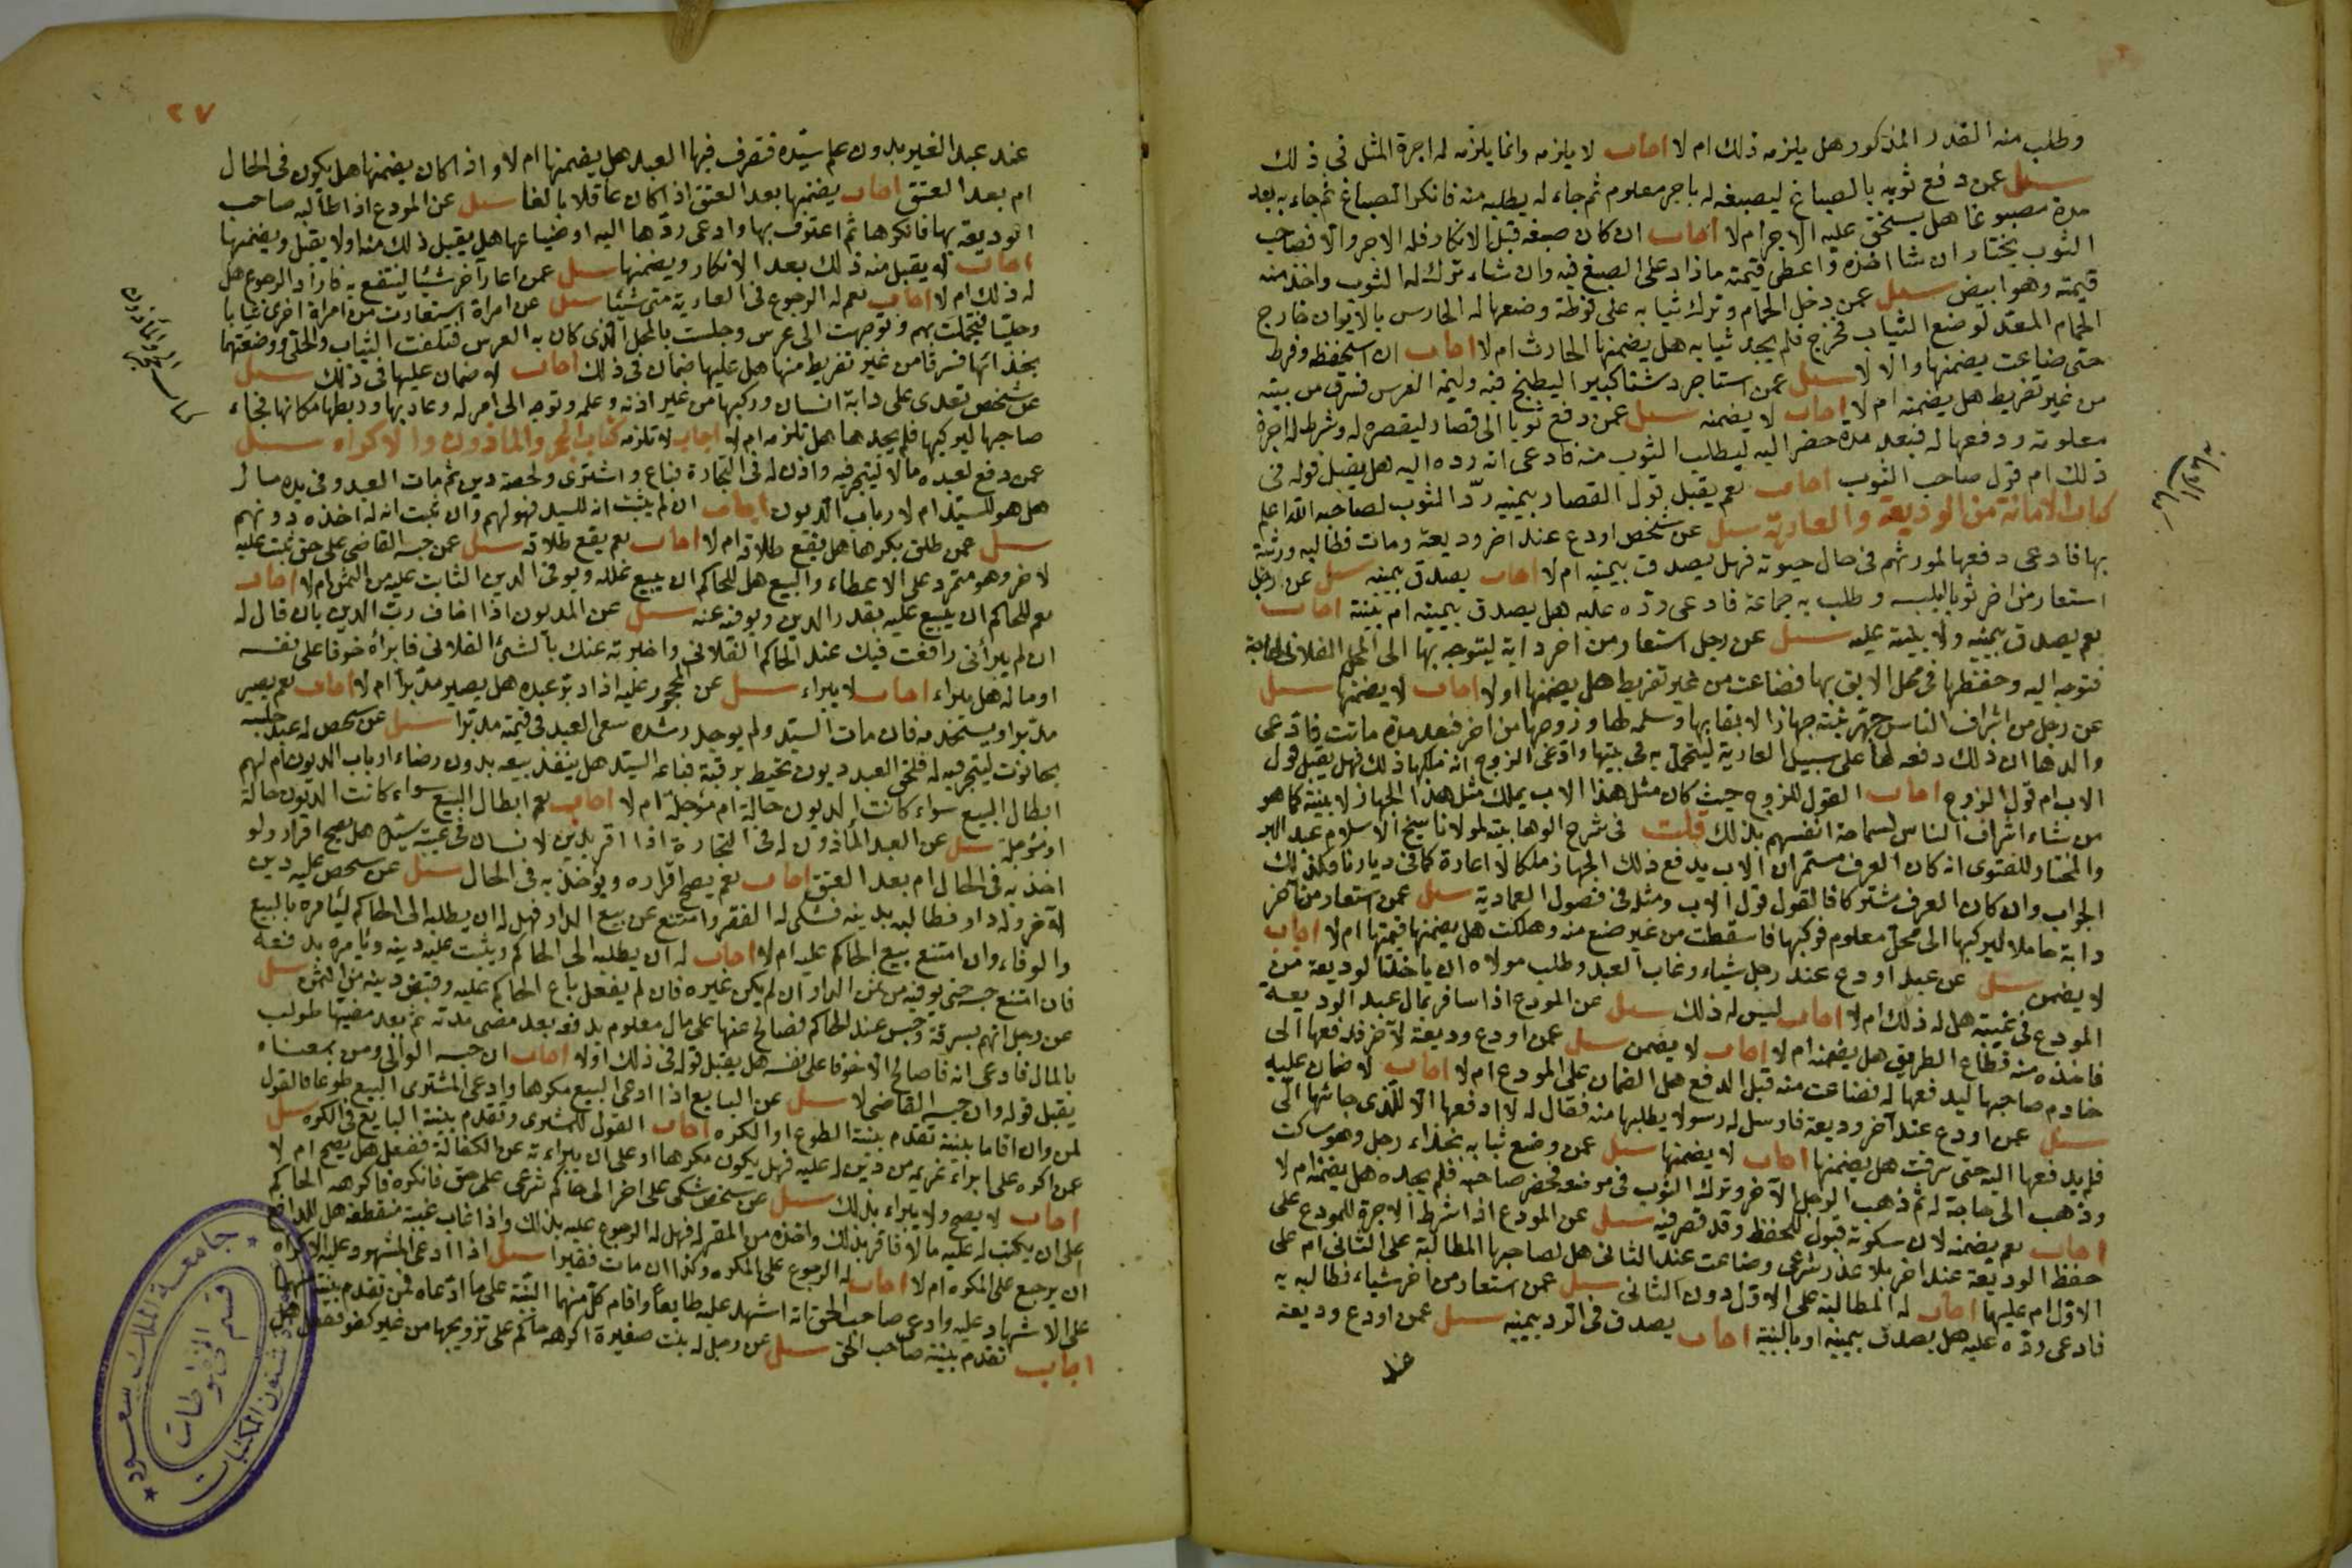 وطلب منه القدر المذكور هل يلزمه ذلك ام لا اجاب لا يلزمه وانما يلزمه له اجرة المثل في ذلك
سئل عمن دفع ثوبه بالصباغ ليصبغه له باجر معلوم ثم جاء له يطلبه منه فانكر الصباغ ثم جاء به بعد
مدة مصبوغا هل يستحق عليه الاجر ام لا اجاب ان كان صبغه قبل الانكار فله الاجر والا فصاحب
الثوب يختار ان شا اخذه واعطى قيمته ماذاد على الصبغ فيه وان شاء ترك له الثوب واخذ منه
قيمته وهو ابيض سئل عمن دخل الحمام وترك ثيابه على فوطة وضعها له الحارس بالايوان خارج
الحمام المعد لوضع الثياب فخرج فلم يجد ثيابه هل يضمنها الحارث ام لا اجاب ان استحفظه وفرط
حتى ضاعت يضمنها والا لا سئل عمن استاجر دستا كبيرا ليطبخ فيه وليمة العرس فسرق من بيته
من غير تفريط هل يضمنه ام لا اجاب لا يضمنه سئل عمن دفع ثوبا الى قصار ليقصره له وشرط له اجرة
معلومة ودفعها له فبعد مدة حضر اليه ليطلب الثوب منه فادعى انه رده اليه هل يقبل قوله في
ذلك ام قول صاحب الثوب اجاب نعم يقبل قول القصار بيمينه ردّ الثوب لصاحبه الله اعلم
كتاب الامانة من الوديعة والعارية سئل عن شخص اودع عند اخر وديعة ومات فطالبه ورثته
بها فادعى دفعها لمورثهم في حال حيوته فهل يصدق بيمينه ام لا اجاب يصدق بيمينه سئل عن رجل
استعار من اخر ثوبا ليلبسه وطلب به جماعة فادعى ردّه عليه هل يصدق بيمينه ام ببينة اجاب
نعم يصدق بيمينه ولا بينة عليه سئل عن رجل استعار من اخر دابة ليتوجه بها الى المحل الفلانى
فتوجه اليه وحفظها في محل الايق بها فضاعت من غير تفريط هل يضمنها او لا اجاب لا يضمنها سئل
عن رجل من اشراف الناس جهز بنته جهازا لايقا بها وسلمه لها وزوجها من اخر فبعد مدة ماتت فادعى
والدها ان ذلك دفعه لها على سبيل العارية ليتجمل به في بيتها وادعى الزوج انه ملكها ذلك فهل يقبل قول
الاب ام قول الزوج اجاب القول للزوج حيث كان مثل هذا الاب يملك مثل هذا الجهاز لابنته كما هو
من شاء اشراف الناس لسماحة انفسهم بذلك قلت في شرح الوهابية لمولانا شيخ الاسلام عبد البر
والمختار للفتوى انه كان العرف مستمرا ان الاب يدفع ذلك الجهاز ملكا لا اعارة كما في ديارنا فكذلك
الجواب وان كان العرف مشتركا فالقول قول الاب ومثله في فصول العمادية سئل عمن استعار من اخر
دابة حاملا ليركبها الى محل معلوم فركبها فاسقطت من غير صنع منه وهلكت هل يضمنها قيمتها ام لا اجاب
لا يضمن سئل عن عبد اودع عند رجل شياء وغاب العبد وطلب مولاه ان ياخذ الوديعة من
المودع في غيبته هل له ذلك ام لا اجاب ليس له ذلك سئل عن المودع اذا سافر بمال عبد الوديعه
فاخذه منه قطاع الطريق هل يضمنه ام لا اجاب لا يضمن سئل عمن اودع وديعة لاخر فدفعها الى
خادم صاحبها ليدفعها له فضاعت منه قبل الدفع هل الضمان على المودع ام لا اجاب لا ضمان عليه
سئل عمن اودع عند آخر وديعة فارسل له رسولا يطلبها منه فقال له لا ادفعها الا للذى جا شها الى
فلم يدفعها اليه حتى سرقت هل يضمنها اجاب لا يضمنها سئل عمن وضع ثيابه بحذاء رجل وهو ساكت
وذهب الى حاجة له ثم ذهب الرجل الآخر وترك الثوب في موضعه فحضر صاحبه فلم يجده هل يضمنه ام لا
اجاب نعم يضمنه لان سكوته قبول للحفظ وقد قصر فيه سئل عن المودع اذا شرط الاجرة للمودع على
حفظ الوديعة عند اخر بلا عذر شرعى وضاعت عند الثانى هل لصاحبها المطالبة على الثانى ام على
الاول ام عليهما اجاب له المطالبة على الاول دون الثانى سئل عمن استعار من اخر شياء فطالبه به
فادعى ردّه عليه هل يصدق بيمينه او بالبينة اجاب يصدق في الرد بيمينه سئل عمن اودع وديعة
عند
٢٧
عند عبد الغير بدون علم سيّده فتصرف فيها العبد هل يضمنها ام لا واذا كان يضمنها هل يكون في الحال
ام بعد العتق اجاب يضمنها بعد العتق اذا كان عاقلا بالغا سئل عن المودع اذا طالبه صاحب
الوديعة بها فانكرها ثم اعترف بها وادعى ردّها اليه او ضياعها هل يقبل ذلك منه او لا يقبل ويضمنها
اجاب لا يقبل منه ذلك بعد الانكار ويضمنها سئل عمن اعار آخر شيئا لينتفع به فاراد الرجوع هل
له ذلك ام لا اجاب نعم له الرجوع في العارية متى شئا سئل عن امراة استعارت من امراة اخرى ثيابا
وحليّا فتجملت بهم وتوجهت الى عرس وجلست بالمحل الذى كان به العرس فتكلفت الثياب والحلى ووضعتهما
بحذائها فسرقا من غير تفريط منها هل عليها ضمان في ذلك اجاب لا ضمان عليها في ذلك سئل
عن شخص تعدى على دابة انسان وركبها من غير اذنه وعلمه وتوجه الى امر له وعاد بها وربطها مكانها فجاء
صاحبها ليركبها فلم يجدها هل تلزمه ام لا اجاب لا تلزمه كتاب الحجر والماذون والاكراه سئل
عمن دفع لعبده مالا ليتجر فيه واذن له في التجارة فباع واشترى ولحقه دين ثم مات العبد وفي يده مال
هل هو للسيّد ام لارباب الديون اجاب ان لم يثبت انه للسيد فهو لهم وان ثبت انه له اخذه دونهم
سئل عمن طلق مكرها هل يقع طلاقه ام لا اجاب نعم يقع طلاقه سئل عمن حبسه القاضى على حق ثبت عليه
لاخر وهو متمرد على الاعطاء والبيع هل للحاكم ان يبيع عليه ويوفى الدين الثابت عليه من الثمن ام لا اجاب
نعم للحاكم ان يبيع عليه بقدر الدين ويوفيه عنه سئل عن المديون اذا اخاف ربّ الدين بان قال له
ان لم يبرأنى رافعت فيك عند الحاكم الفلانى واخبرته عنك بالشئ الفلانى فابرأه خوفا على نفسه
او ماله هل يبراء اجاب لا يبراء سئل عن المحجور عليه اذا دبّر عبده هل يصير مدبّرا ام لا اجاب نعم يصير
مدبّرا ويستخدمه فان مات السيّد ولم يوجد رشده سعى العبد في قيمته مدبّرا سئل عن شخص له عبد
بحانوت ليتجر فيه له فلحق العبد ديون تحيط برقبته فباعه السيّد هل ينفذ بيعه بدون رضاء ارباب الديون ام لهم
ابطال البيع سواء كانت الديون حالة ام مؤجلة ام لا اجاب نعم ابطال البيع سواء كانت الديون حالة
او مؤجلة سئل عن العبد المأذون له في التجارة اذا اقر بدين لانسان في غيبة سيّده هل يصح اقراره ولو
اخذ به في الحال ام بعد العتق اجاب نعم يصح اقراره ويؤخذ به في الحال سئل عن شخص عليه دين
لآخر وله دار فطالبه بدينه فشكى له الفقر وامتنع عن بيع الدار فهل له ان يطلبه الى الحاكم ليأمره بالبيع
والوفاء وان امتنع يبيع الحاكم عليه ام لا اجاب له ان يطلبه الى الحاكم ويثبت عليه دينه ويأمره بدفعه
فان امتنع حبسه حتى يوفيه من ثمن الدار ان لم يكن غيره فان لم يفعل باع الحاكم عليه وقبض دينه من الثمن سئل
عن رجل اتهم بسرقة وحبس عند الحاكم فصالح عنها على مال معلوم يدفعه بعد مضى مدته ثم بعد مضيها طولب
بالمال فادعى انه ما صالح الا خوفا على نفسه هل يقبل قوله في ذلك او لا اجاب ان حبسه الوالى ومن بمعناه
يقبل قوله وان حبسه القاضى لا سئل عن البايع اذا ادعى البيع مكرها وادعى المشترى البيع طوعا فالقول
لمن وان اقاما بينة تقدم بينة الطوع او الكره اجاب القول للمشترى وتقدم بينة البايع في الكره سئل
عمن اكره على ابراء غريمه من دين له عليه فهل يكون مكرها او على ان يبراءته عن الكفالة ففعل هل يصح ام لا
اجاب لا يصح ولا يبراء بذلك سئل عن شخص شكى على اخر الى حاكم شرعى على حق فانكره فاكرهه الحاكم
على ان يكتب له عليه مالا فاقر بذلك واخذه من المقر له فهل له الرجوع عليه بذلك واذا غاب غيبة منقطعة هل للدافع
ان يرجع على المكره ام لا اجاب له الرجوع على المكره وكذا ان مات فقيرا سئل اذا ادعى المشهود عليه الاكراه
على الاشهاد عليه وادعى صاحب الحق انه اشهد عليه طايعا واقام كل منهما البيّنة على ما ادّعاه فمن تقدم بينته
اجاب تقدم بينة صاحب الحق سئل عن رجل له بنت صغيرة اكرهه حاكم على تزويجها من غير كفو ففعل هل
جامعة الملك سعود
عمادة شئون المكتبات
قسم المخطوطات